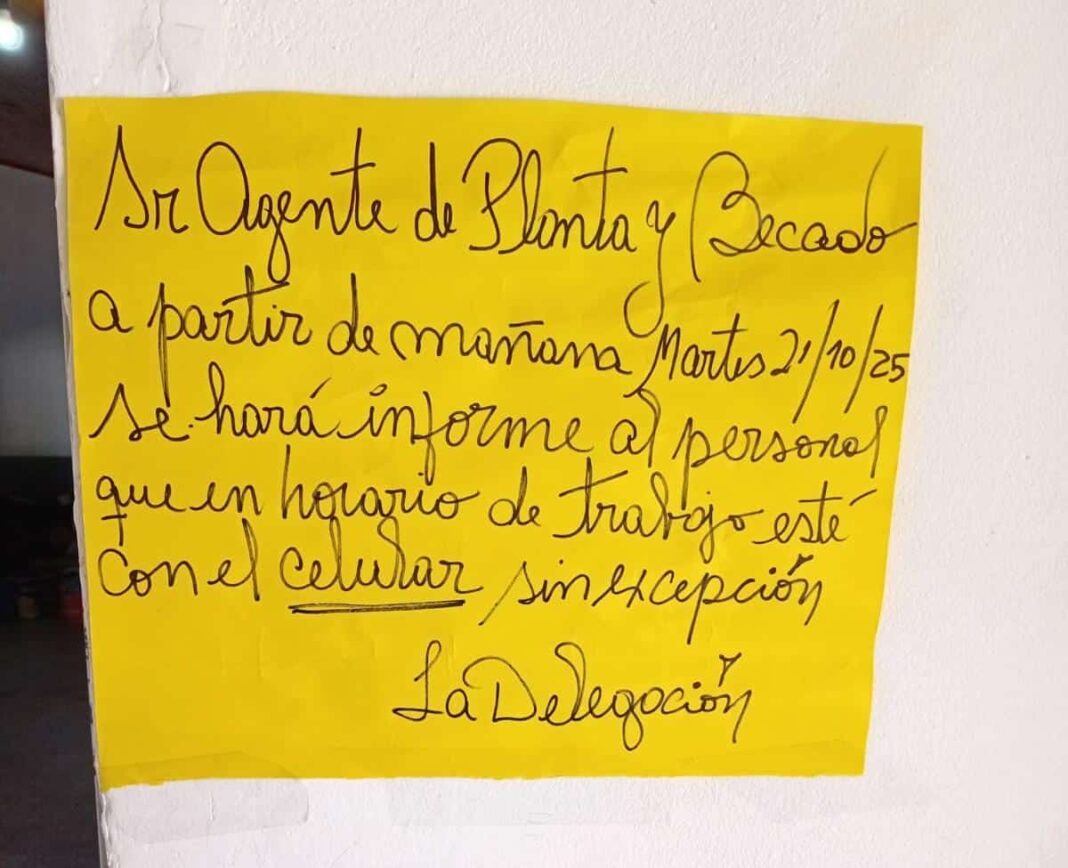 Sr Agente de Planta y Becado
a partir de mañana Martes 21/10/25
se hará informe al personal
que en horario de trabajo esté
con el celular sin excepción
La Delegación